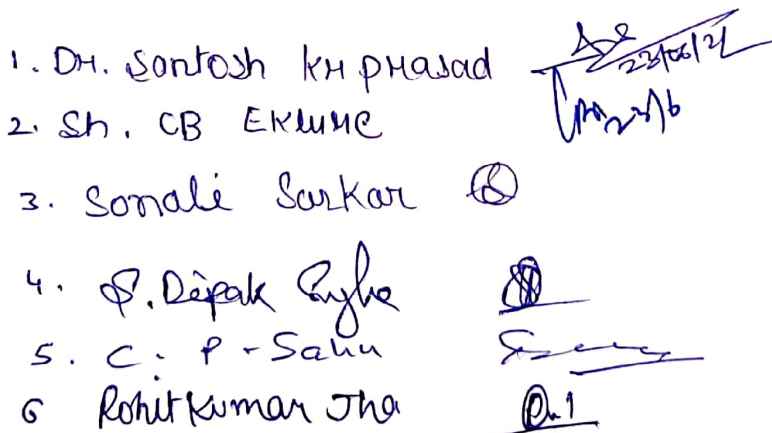 1. Dr. Santosh Kr Prasad 23/06/21
2. Sh. CB 23/6
3. Sonali Sarkar
4. S. Dipak
5. C. P - Sahu
6 Rohit Kumar Jha